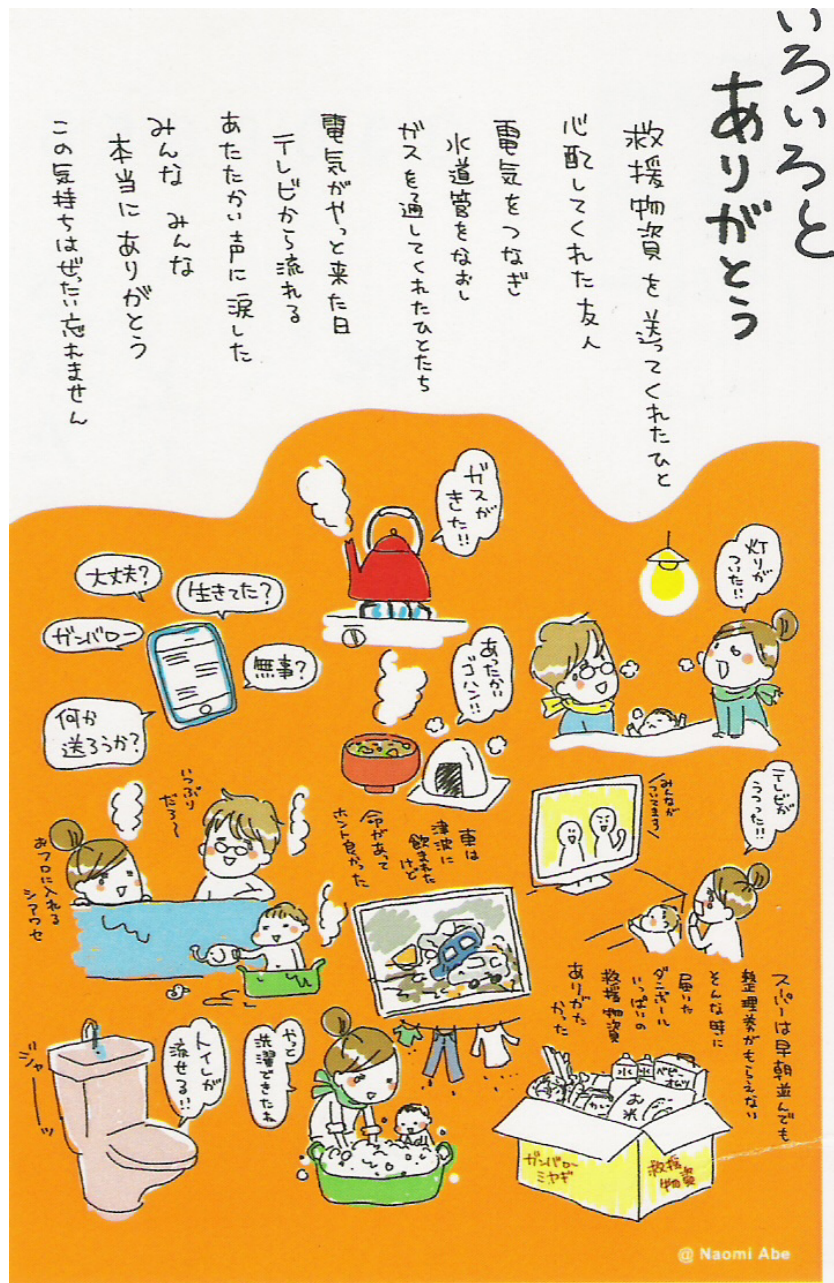 いろいろと
ありがとう
救援物資を送ってくれたひと
心配してくれた友人
電気をつなぎ
水道管をなおし
ガスを通してくれたひとたち
電気がやっと来た日
テレビから流れる
あたたかい声に涙した
みんな みんな
本当に ありがとう
この気持ちはぜったい忘れません
ガスが
きた!!
灯りが
ついた!!
大丈夫?
生きてた?
ガンバロー
無事?
何か
送ろうか?
あったかい
ゴハン!!
みんなが
ついてます
テレビが
うつった!!
いつぶり
だろ〜
おフロに入れる
シアワセ
車は
津波に
飲まれた
けど
命があって
ホント良かった
スーパーは早朝並んでも
整理券がもらえない
そんな時に
届いた
ダンボール
いっぱいの
救援物資
ありがた
かった
ジャーーッ
トイレが
流せる!!
やっと
洗濯できたね
水
水
ベビー
オムツ
お米
ガンバロー
ミヤギ
救援
物資
@ Naomi Abe